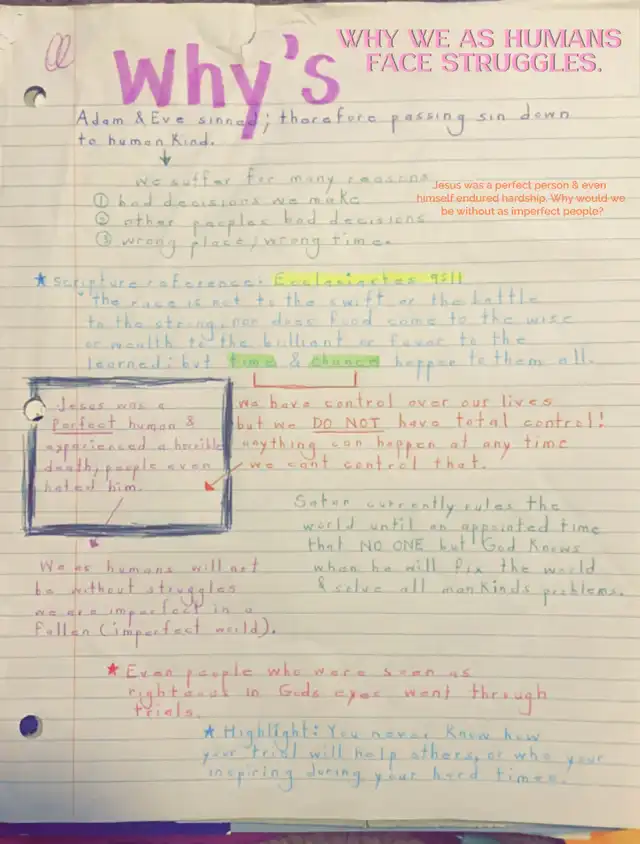 Why's
WHY WE AS HUMANS
FACE STRUGGLES.
Adam & Eve sinned; therefore passing sin down
to human kind.
We suffer for many reasons
① bad decisions we make
② other peoples bad decisions
③ wrong place, wrong time.
Jesus was a perfect person & even
himself endured hardship. Why would we
be without as imperfect people?
★ Scripture reference: Ecclesiastes 9:11
"The race is not to the swift or the battle
to the strong, nor does food come to the wise
or wealth to the brilliant or favor to the
learned; but time & chance happen to them all.
We have control over our lives
but we DO NOT have total control!
anything can happen at any time
we cant control that.
Jesus was a
perfect human &
experienced a horrible
death, people even
hated him.
Satan currently rules the
world until an appointed time
that NO ONE but God knows
when he will fix the world
& solve all mankinds problems.
We as humans will not
be without struggles
we are imperfect in a
fallen (imperfect world).
★ Even people who were seen as
righteous in Gods eyes went through
trials.
★ Highlight: You never know how
your trial will help others, or who your
inspiring during your hard times.